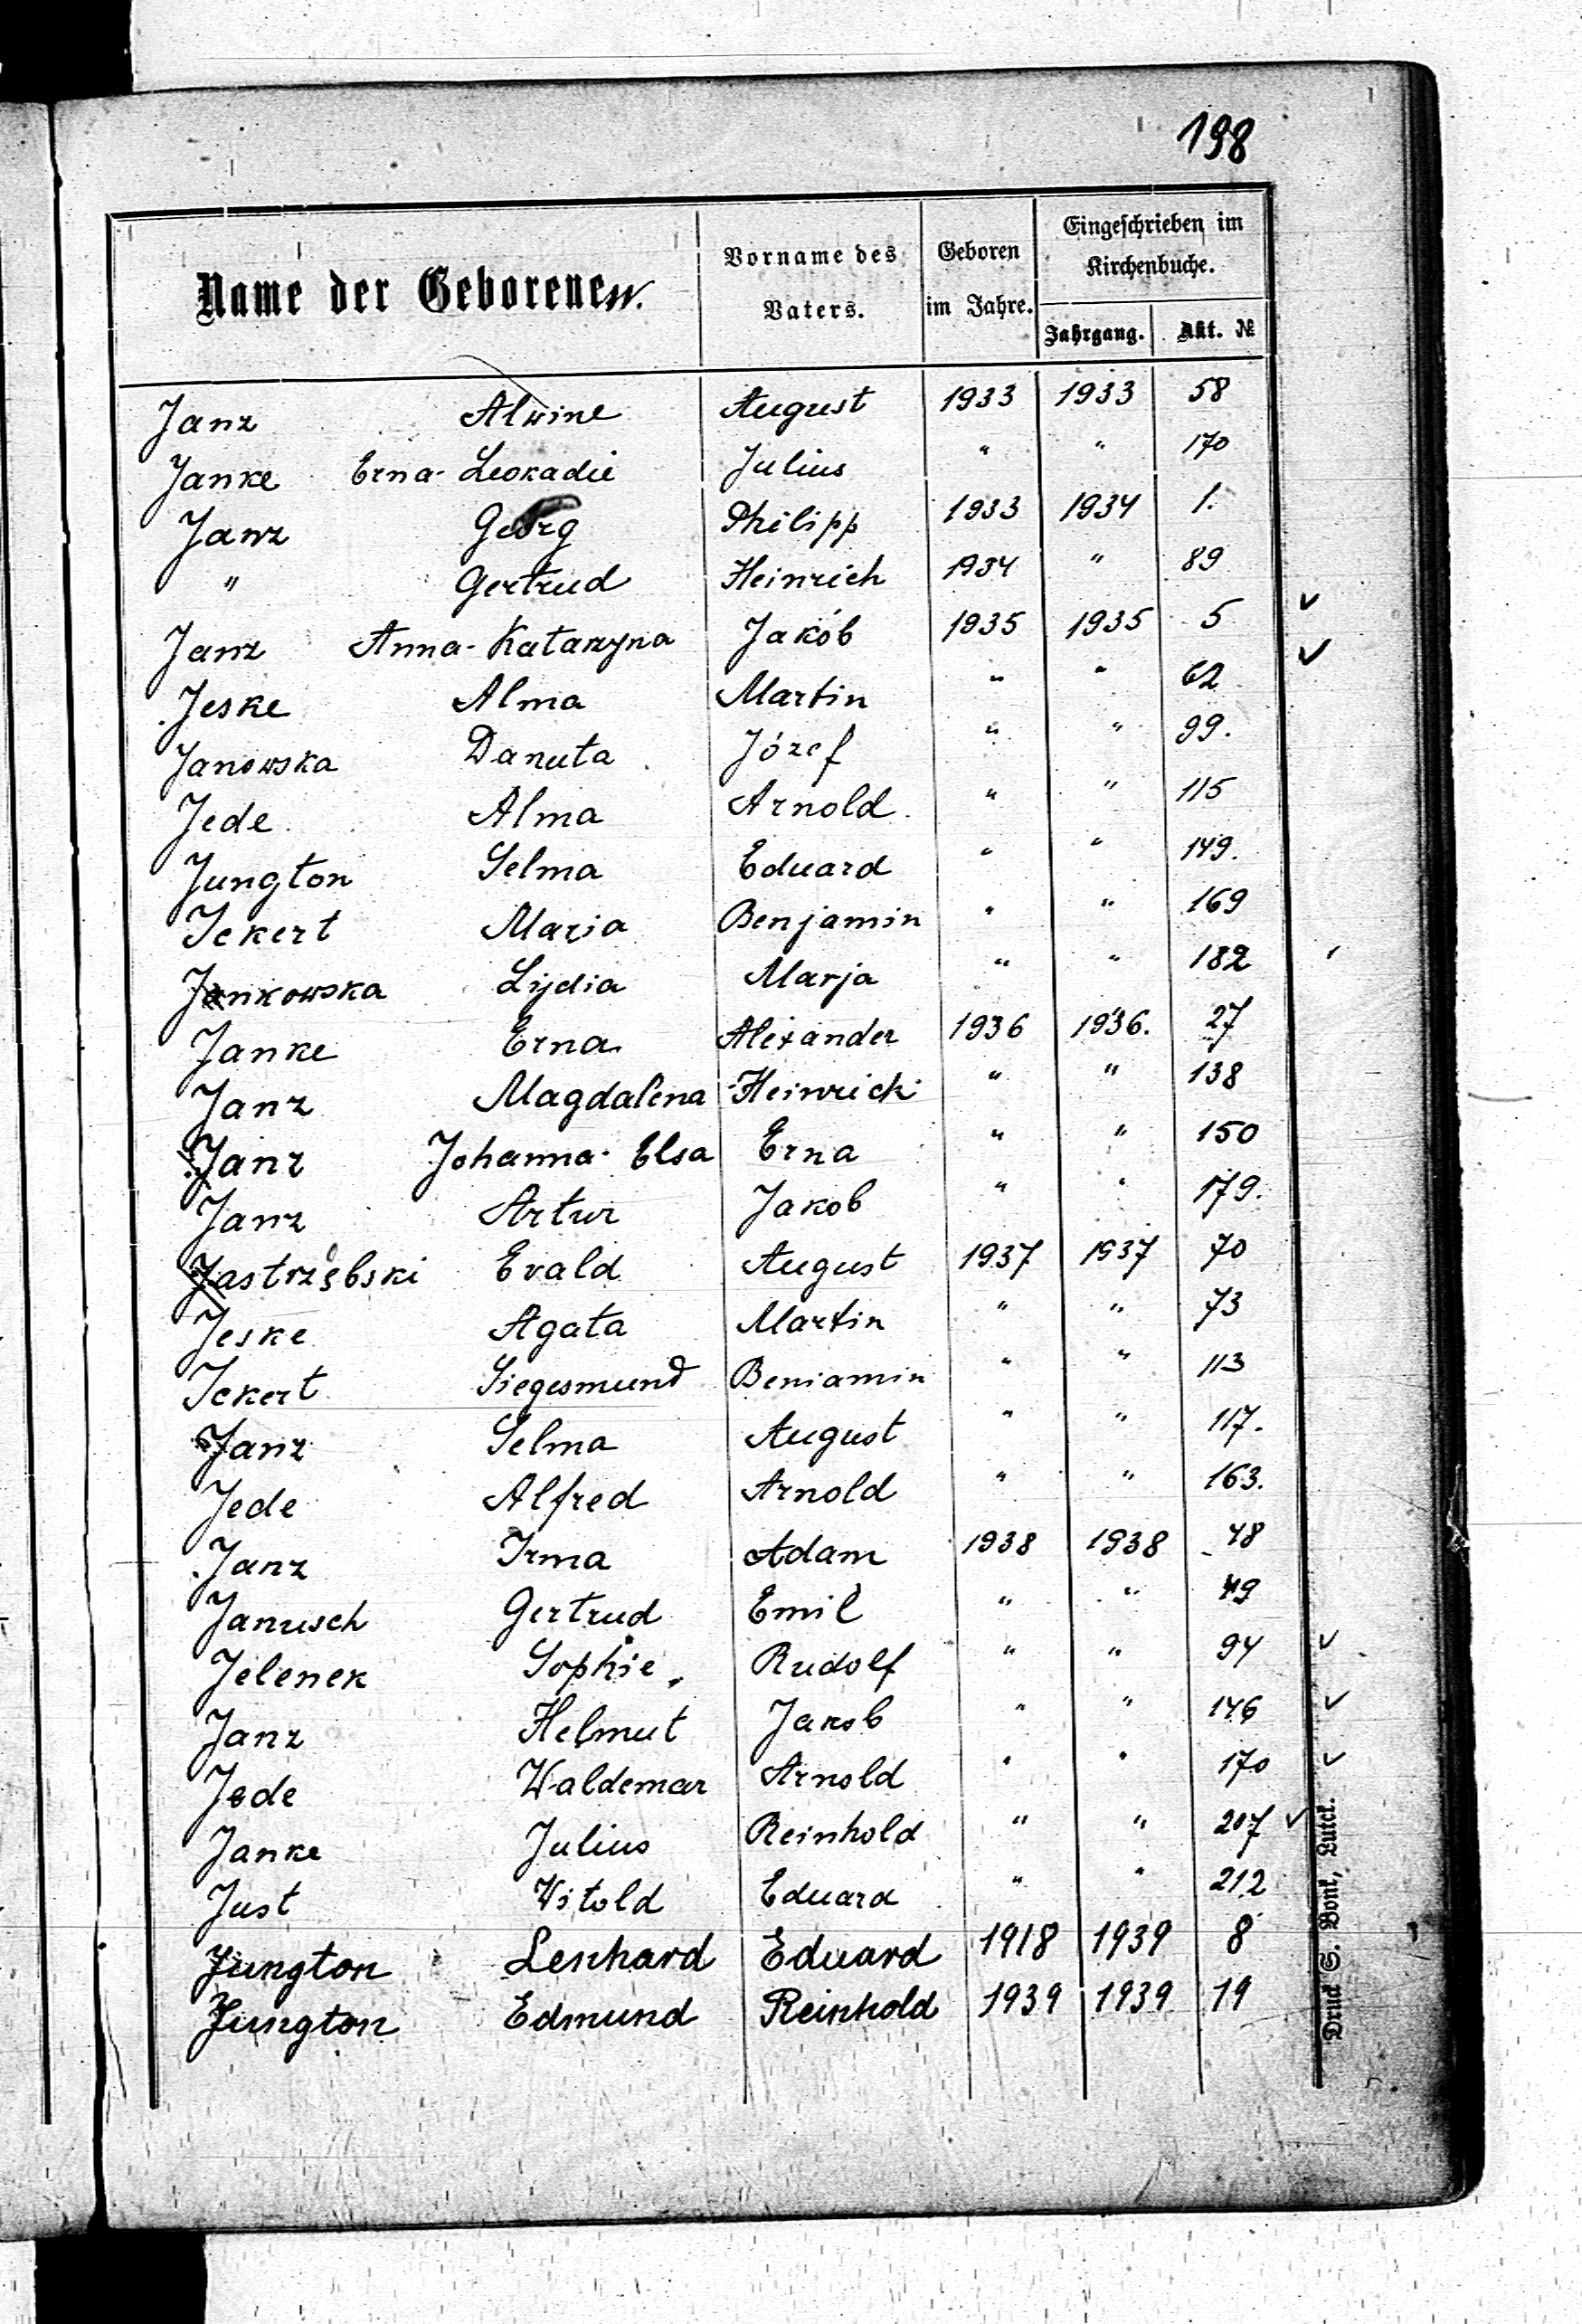 198
Name der Geborenen.
Vorname des Vaters.
Geboren im Jahre.
Eingeschrieben im Kirchenbuche.
Jahrgang. Akt. №
Janz Alwine August 1933 1933 58
Janke Erna-Leokadie Julius " " 170
Janz Georg Philipp 1933 1934 1.
" Gertrud Heinrich 1934 " 89
Janz Anna-Katarzyna Jakób 1935 1935 5 ✓
Jeske Alma Martin " " 62 ✓
Janowska Danuta Józef " " 99.
Jede Alma Arnold " " 115
Jungton Selma Eduard " " 149.
Ickert Maria Benjamin " " 169
Jankowska Lydia Marja " " 182
Janke Erna Alexander 1936 1936. 27
Janz Magdalena Heinrich " " 138
Janz Johanna-Elsa Erna " " 150
Janz Artur Jakob " " 179.
Jastrzębski Evald August 1937 1937 70
Jeske Agata Martin " " 73
Ickert Siegesmund Beniamin " " 113
Janz Selma August " " 117.
Jede Alfred Arnold " " 163.
Janz Irma Adam 1938 1938 48
Janusch Gertrud Emil " " 49
Jelenek Sophie Rudolf " " 94 ✓
Janz Helmut Jakob " " 146 ✓
Jede Waldemar Arnold " " 170 ✓
Janke Julius Reinhold " " 207 ✓
Just Witold Eduard " " 212
Jungton Lenhard Eduard 1918 1939 8
Jungton Edmund Reinhold 1939 1939 19
Druck S. Bonk, Luck.